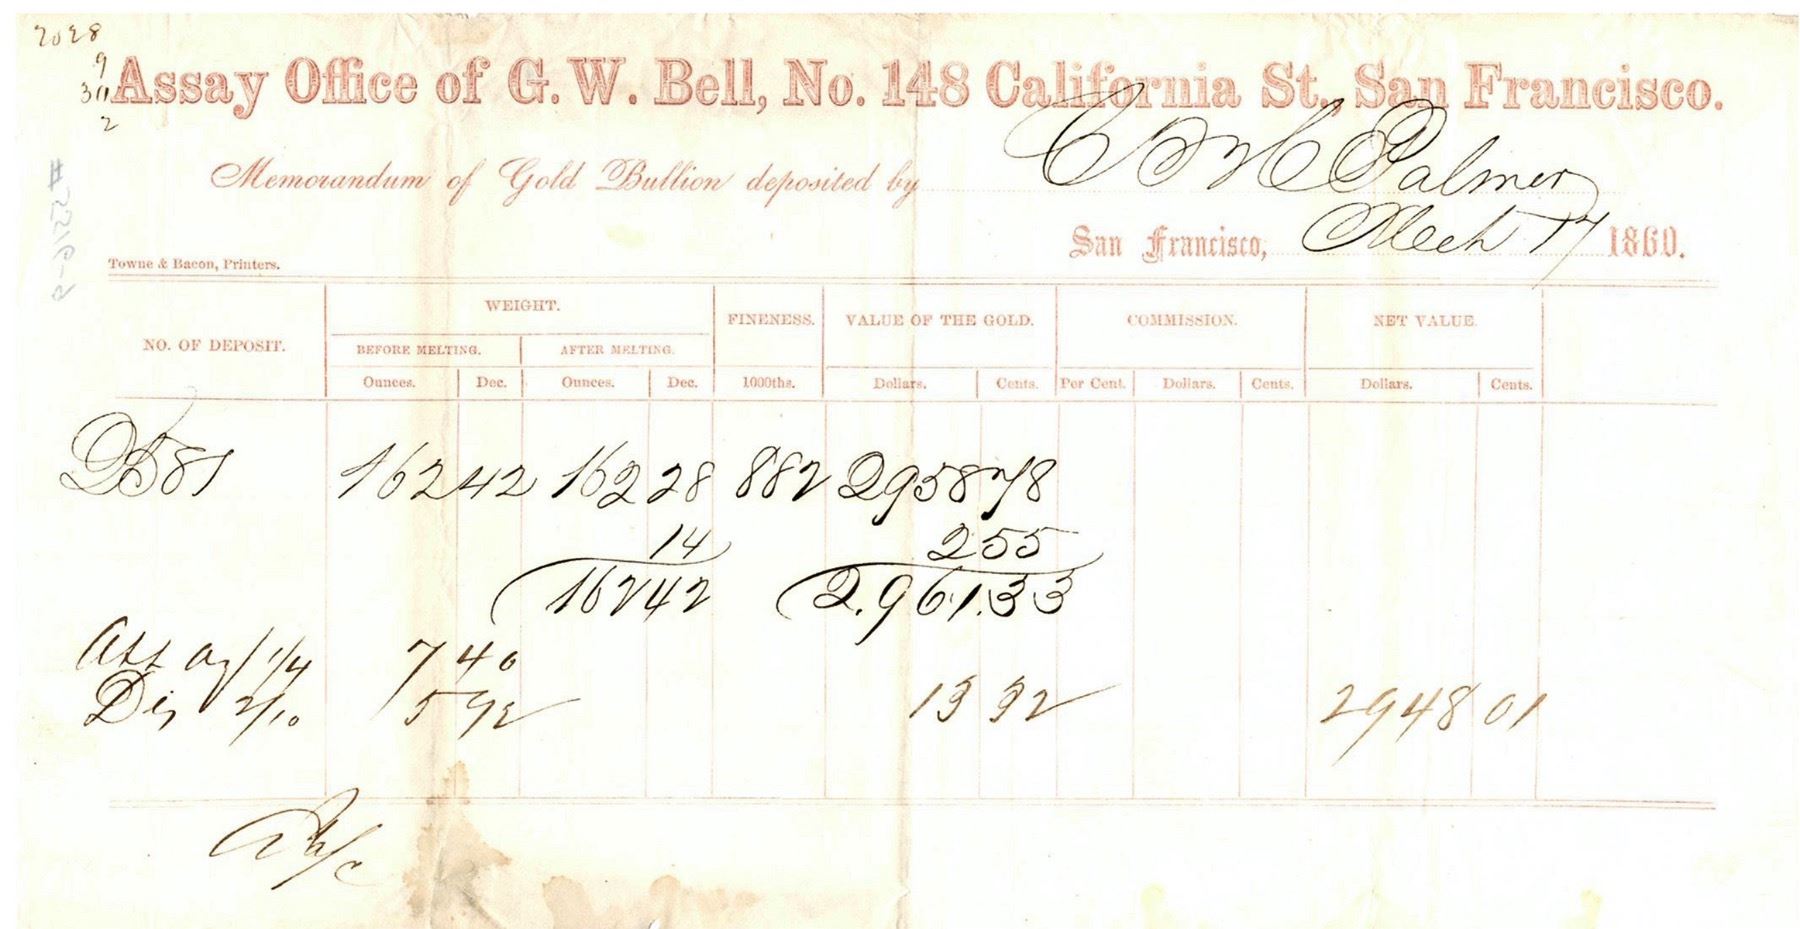 2028
9
2
Assay Office of G. W. Bell, No. 148 California St., San Francisco.
Memorandum of Gold Bullion deposited by C W H Palmer
San Francisco, Mch 17 1860.
Towne & Bacon, Printers.
NO. OF DEPOSIT. WEIGHT. FINENESS. VALUE OF THE GOLD. COMMISSION. NET VALUE.
BEFORE MELTING. AFTER MELTING.
Ounces. Dec. Ounces. Dec. 1000ths. Dollars. Cents. Per Cent. Dollars. Cents. Dollars. Cents.
162 42 162 28 882 2958 78
14 2 55
162 42 2.961.33
Assay 1/4 7 40
Dis 2/10 5 92 13 32 2948 01